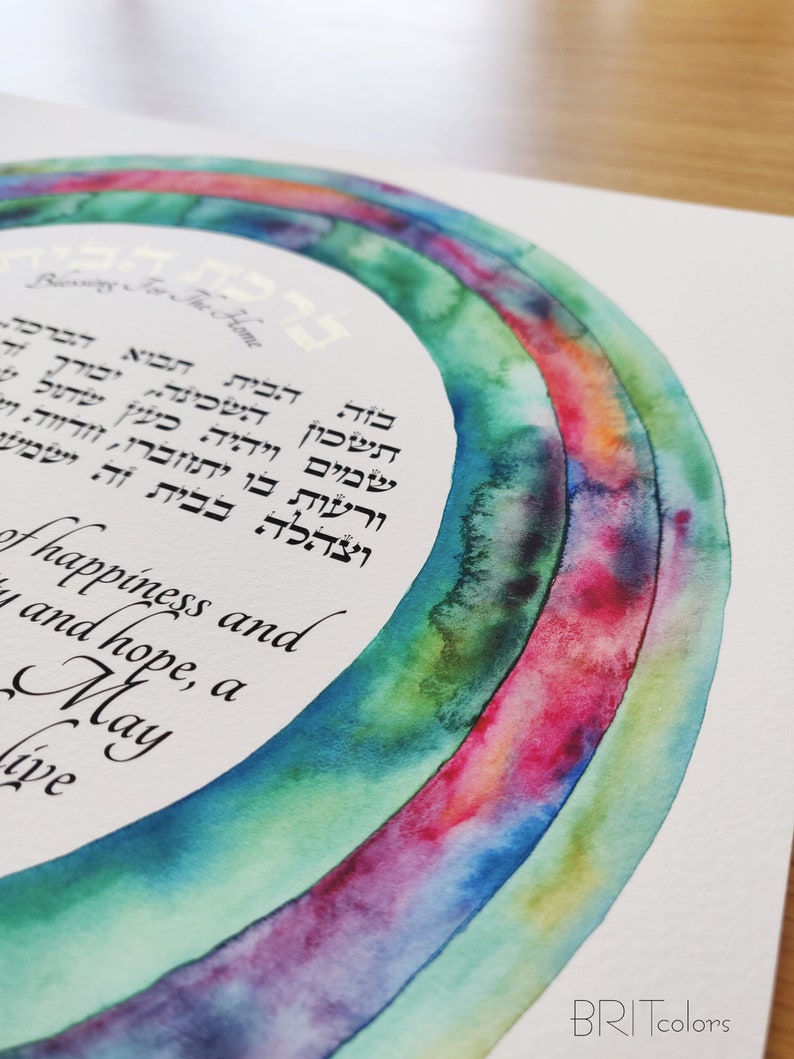 ברכת הבית
Blessing For The Home
בזה הבית תבוא הברכה
תשכון השכינה, יבורך
שמים ויהיה כעץ שתול
ורעות בו יתחברו, חדווה
וצהלה בבית זה
of happiness and
and hope, a
May
live
BRITcolors